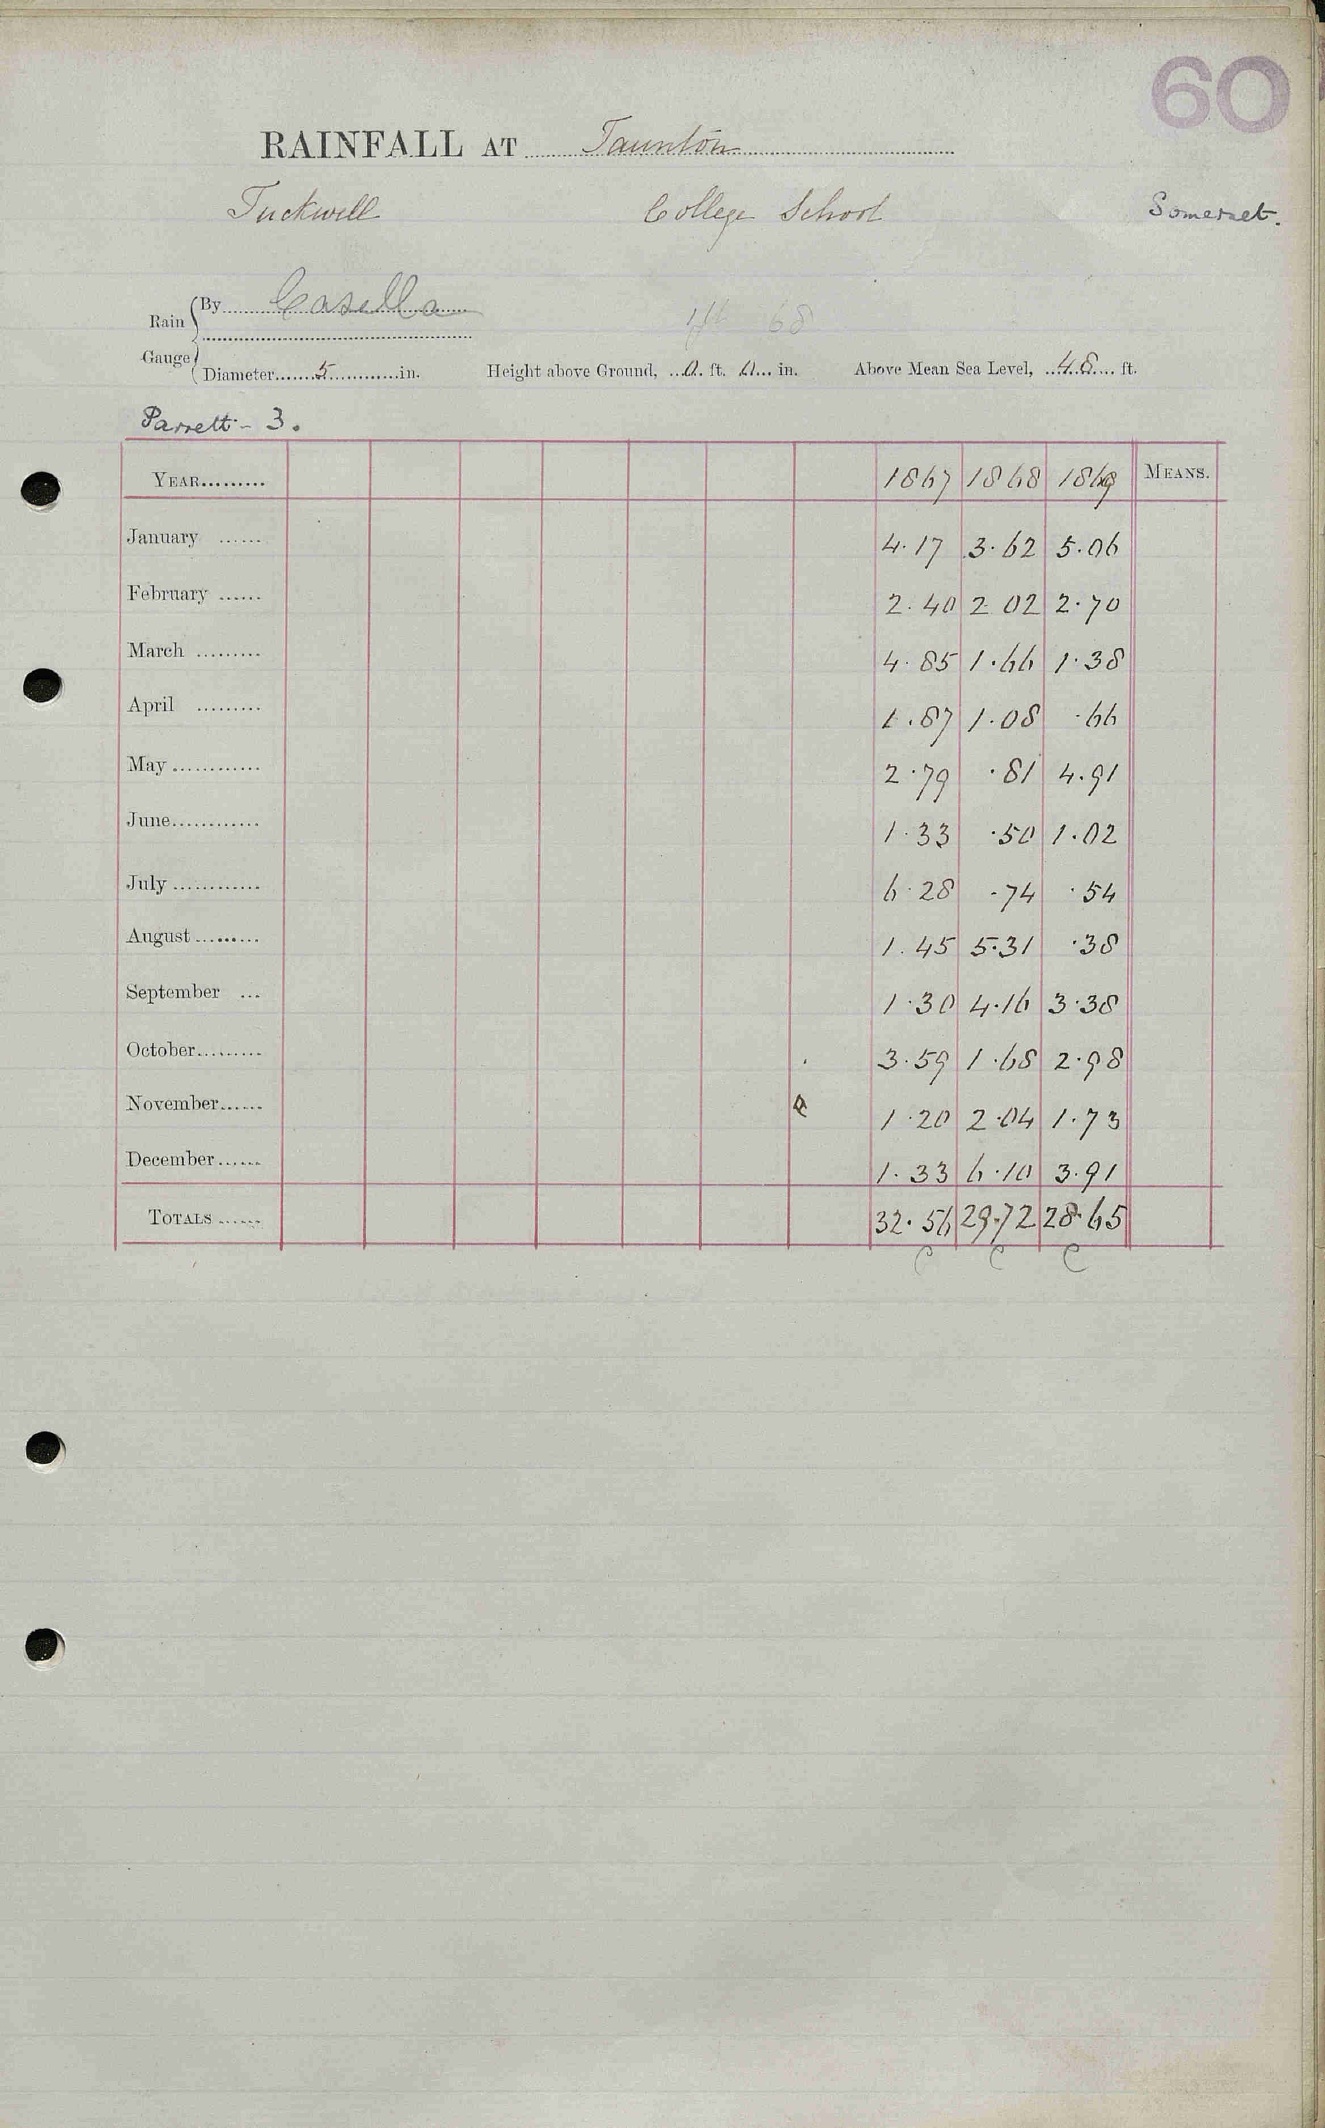 60
RAINFALL AT Taunton
Tuckwell College School Somerset.
Rain Gauge
By Casella
Diameter 5 in. Height above Ground, 0 ft. 0 in. Above Mean Sea Level, 48 ft.
Parrett - 3.
YEAR 1867 1868 1869 MEANS.
January 4.17 3.62 5.06
February 2.40 2 02 2.70
March 4.85 1.66 1.38
April 1.87 1.08 .66
May 2.79 .81 4.91
June 1.33 .50 1.02
July 6.28 .74 .54
August 1.45 5.31 .38
September 1.30 4.16 3.38
October 3.59 1.68 2.98
November 1.20 2.04 1.73
December 1.33 6.10 3.91
TOTALS 32.56 29.72 28.65
C C C